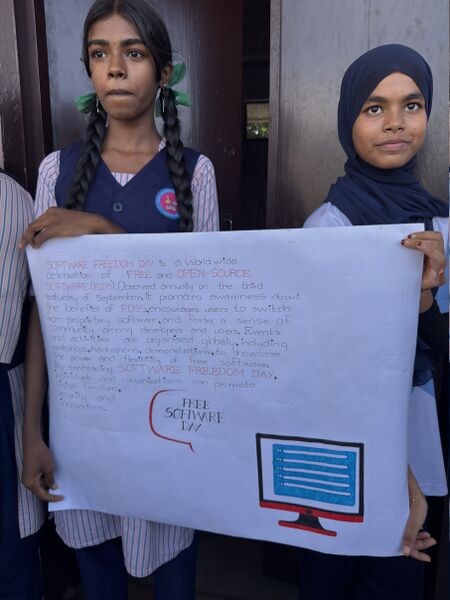 SOFTWARE FREEDOM DAY is a World wide
celebration of FREE and OPEN-SOURCE
SOFTWARE (FOSS). Observed annually on the third
saturday of september, it promotes awareness about
the benefits of FOSS, encourages users to switch
from proprietary software, and foster a sense of
community among developers and users. Events
and activities are organised globaly, including
workshops, hackathons, demonstrations, to showcase
the power and flexibility of free software.
By embracing SOFTWARE FREEDOM DAY,
individuals and organisations can promote
digital freedom,
security and
innovations.
FREE
SOFTWARE
DAY